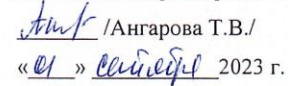 /Ангарова Т.В./
«01» сентября 2023 г.